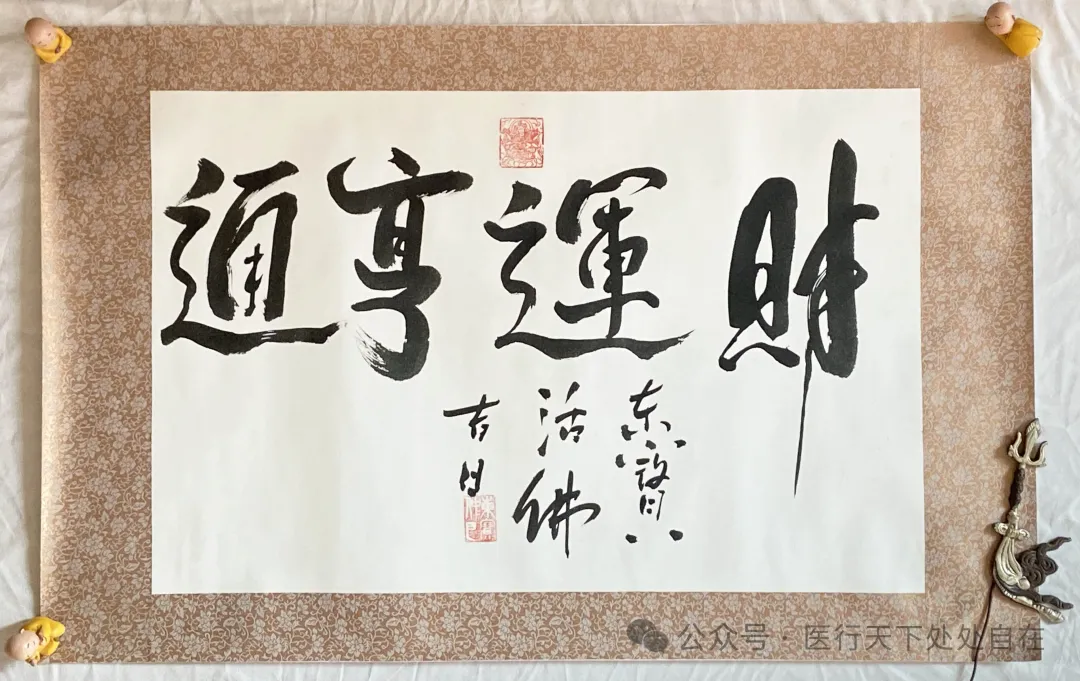 財運亨通
东寳
活佛
吉日
公众号 · 医行天下处处自在